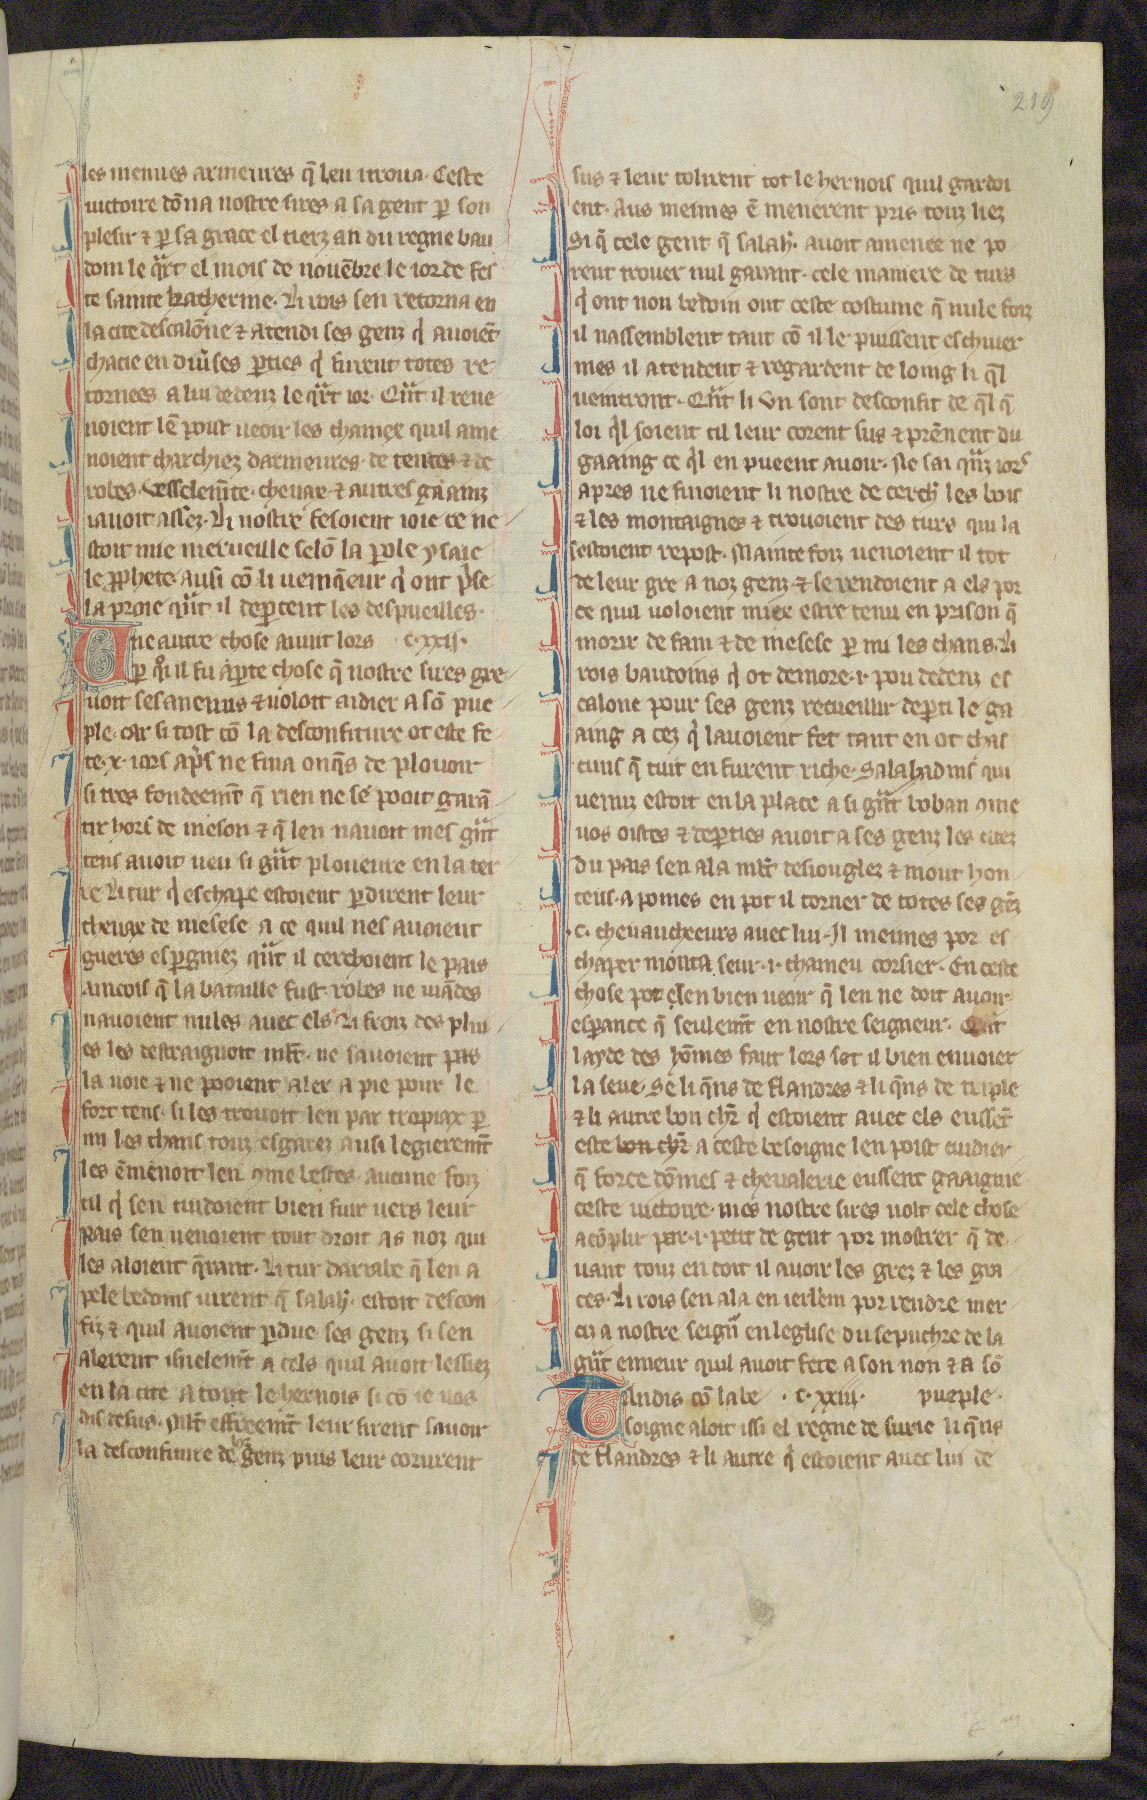 219
les menues armeures q̃ len itroua. Ceste
uictoire dõna nostre sires a sa gent ꝑ son
plesir ⁊ ꝑ sa grace el tierz an du regne bau
doin le q̃rt el mois de nouẽbre le ior de fes
te sainte katherine. Li rois sen retorna en
la cite descalõne ⁊ atendi ses genz q̇ auoiẽt
chacie en diũses ꝑties q̇ furent totes re
tornees a lui dedenz le q̃rt ior. Qñt il reue
noient lẽ pout ueoir les chamex quil ame
noient charchiez darmeures. de tentes ⁊ de
robes. uesselemẽte. cheuax ⁊ autres gaainz
iauoit assez. Li nostre fesoient ioie ce ne
stoit mie merueille selõ la ꝑole ysaie
le ꝓphete. ausi cõ li uenq̃eur q̇ ont p̃se
la proie qñt il deꝑtent les despueilles.
Une autre chose auint lors .c.xxij.
ꝑ q̇i il fu aꝑte chose q̃ nostre sires gre
uoit ses anemis ⁊ uoloit aidier a sõ pue
ple. car si tost cõ la desconfiture ot este fe
te .x. iors ap̃s ne fina onq̃s de plouoir
si tres fondeemẽt q̃ rien ne se pooit garã
tir hors de meson ⁊ q̃ len nauoit mes gñt
tens auoit ueu si gñt ploueure en la ter
re. Li tur q̇ eschape estoient ꝑdirent leur
cheuax de mesese a ce quil nes auoient
gueres esꝑgniez qñt il cerchoient le pais
aincois q̃ la bataille fust. robes ne uiãdes
nauoient nules auec els. Li froiz des plui
es les destraignoit mlt̃. ne sauoient pas
la uoie ⁊ ne pooient aler a pie pour le
fort tens. si les trouoit len par tropiax ꝑ
mi les chans touz esgarez ausi legieremẽt
les ẽmenoit len 9me bestes. aucune foiz
cil q̇ sen cuidoient bien fuir uers leur
pais sen uenoient tout droit as noz qui
les aloient q̃rant. Li tur darrabe q̃ len a
pele bedoins uirent q̃ salah̃. estoit descon
fiz ⁊ quil auoient ꝑdue ses genz si sen
alerent isnelemẽt a cels quil auoit lessiez
en la cite a tout le hernois si cõ ie uos
dis desus. mlt̃ effreemẽt leur firent sauoir
la desconfiture de lor genz puis leur corurent
sus ⁊ leur tolirent tot le hernois quil gardoi
ent. Aus meimes ẽ menerent pris touz liez
Si q̃ cele gent q̃ salah̃. auoit amenee ne po
rent trouer nul garant. cele maniere de turs
q̇ ont non bedoin ont ceste costume q̃ nule foiz
il nassemblent tant cõ il le puissent eschiuer
mes il atendent ⁊ regardent de loing li q̃l
ueintront. Qñt li un sont desconfit de q̃l q̃
loi q̇l soient cil leur corent sus ⁊ prẽnent du
gaaing ce q̇l en pueent auoir. Ne sai qñz iors
apres ne finoient li nostre de cerch̃ les bois
⁊ les montaignes ⁊ trouoient des turs qui la
sestoient repost. Mainte foiz uenoient il tot
de leur gre a noz genz ⁊ se rendoient a els por
ce quil uoloient miex estre tenu en prison q̃
morir de fain ⁊ de mesese ꝑ mi les chans. Li
rois baudoins q̇ ot demore .i. pou dedenz es
calone pour ses genz recueillir deꝑti le ga
aing a cez q̇ lauoient fet tant en ot chas
cuns q̃ tuit en furent riche. Salahadins qui
uenuz estoit en la place a si gñt boban 9me
uos oistes ⁊ deꝑties auoit a ses genz les citez
du pais sen ala mlt̃ desiouglez ⁊ mout hon
teus. a poines en pot il torner de totes ses gẽz
.c. cheuaucheeurs auec lui. Il meimes por es
chaper mõnta seur .i. chameu corsier. En ceste
chose pot q̇len bien ueoir q̃ len ne doit auoir
esꝑance q̃ seulemẽt en nostre seigneur. Qñt
layde des hõmes faut lors set il bien enuoier
la seue. Se li q̃ns de flandres ⁊ li q̃ns de triple
⁊ li autre bon chr̃ q̇ estoient auec els eussẽt
este bon chr̃ a ceste besoigne len poist cuidier
q̃ force dõmes ⁊ cheualerie eussent gaaignie
ceste uictoire. mes nostre sires uolt cele chose
acõplir par .i. petit de gent por mostrer q̃ de
uant touz en doit il auoir les grez ⁊ les gra
ces. Li rois sen ala en ierl̃em por rendre mer
ciz a nostre seigñ en leglise du sepuchre de la
gñt enneur quil auoit fete a son non ⁊ a sõ
Tandis cõ la be .c.xxiij. pueple.
soigne aloit issi el regne de surie li q̃ns
de flandres ⁊ li autre q̇ estoient auec lui de